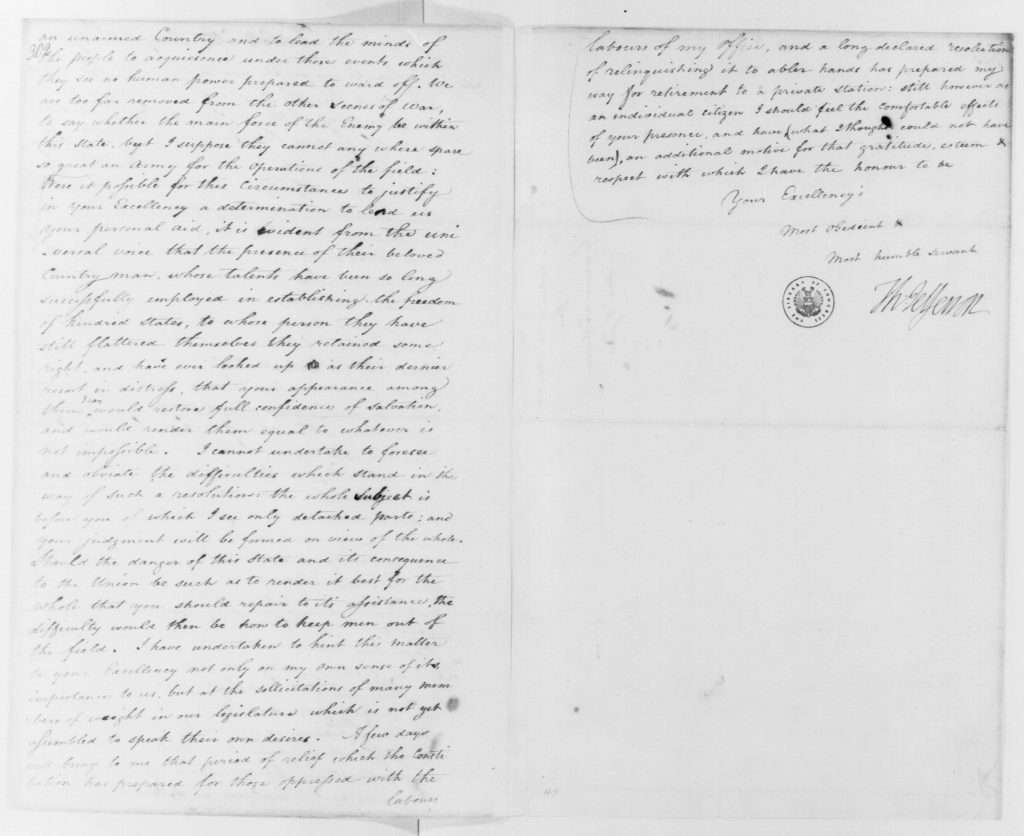 an unarmed Country and to lead the minds of
309
the people to acquiescence under those events which
they see no human power prepared to ward off. We
are too far removed from the other Scenes of War,
to say whether the main force of the Enemy be within
this state, but I suppose they cannot any where spare
so great an Army for the operations of the field:
Were it possible for this Circumstance to justify
in your Excellency a determination to lend us
your personal aid, it is evident from the uni
-versal voice that the presence of their beloved
Country man, whose talents have been so long
successfully employed in establishing the freedom
of kindred States, to whose person they have
still flattered themselves they retained some
right, and have ever looked up as their dernier
resort in distress, that your appearance among
them would restore full confidence of salvation,
and would render them equal to whatever is
not impossible. I cannot undertake to foresee
and obviate the difficulties which stand in the
way of such a resolution: the whole Subject is
before you of which I see only detached parts; and
your judgment will be formed on view of the whole.
Should the danger of this State and its consequence
to the Union be such as to render it best for the
whole that you should repair to its assistance, the
difficulty would then be how to keep men out of
the field. I have undertaken to hint this matter
to your Excellency not only on my own sense of its
importance to us, but at the sollicitations of many mem
bers of weight in our legislature which is not yet
assembled to speak their own desires. A few days
will bring to me that period of relief which the Consti
tution has prepared for those oppressed with the
labours
labours of my office, and a long declared resolution
of relinquishing it to abler hands has prepared my
way for retirement to a private station: still however as
an individual citizen I should feel the comfortable effects
of your presence, and have (what I thought could not have
been), an additional motive for that gratitude, esteem &
respect with which I have the honour to be
Your Excellency's
Most Obedient &
Most humble Servant
Th Jefferson
THE LIBRARY OF CONGRESS